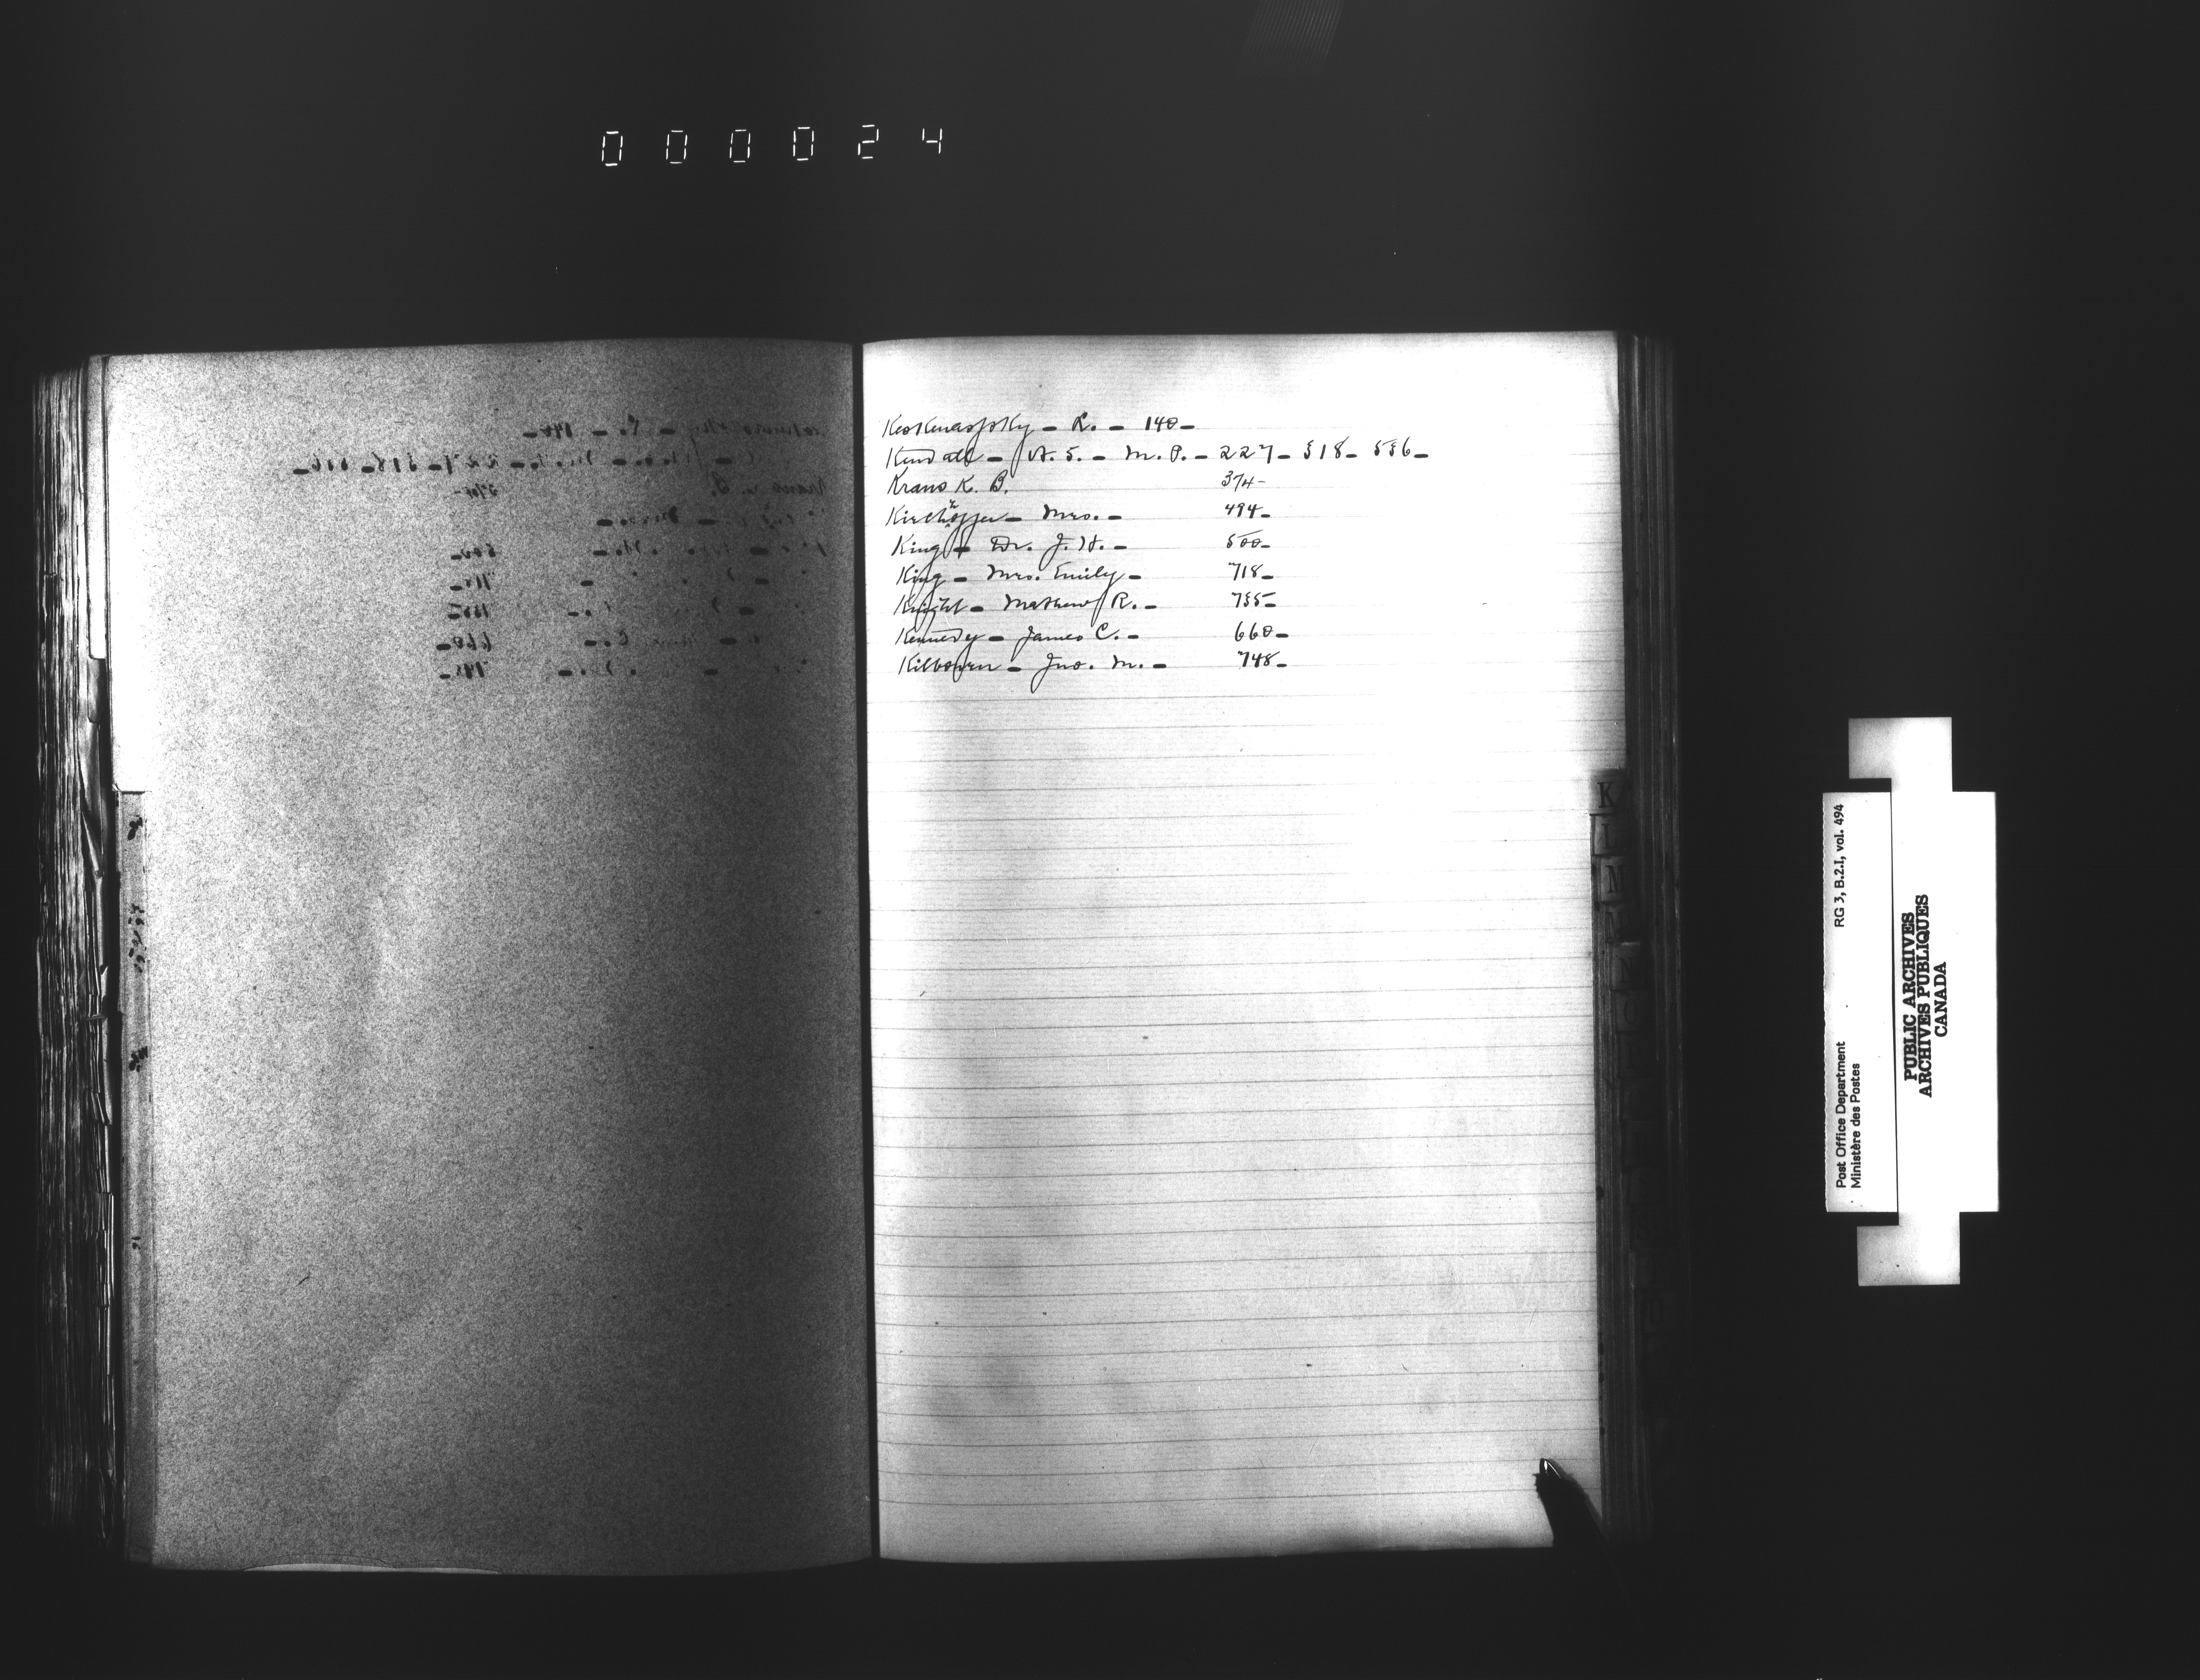 000024
Kendall - A. S. - M. P. - 227 - 518 - 536 -
Krans K. B. 374 -
Kirchhoffer - Mrs. - 494 -
King - Dr. J. H. - 500 -
King - Mrs. Emily - 718 -
Knight - Mathew R. - 735 -
Kennedy - James C. - 660 -
Kilborn - Jno. M. - 748 -
R. - 140 -
K
L
M
N
Post Office Department
Ministère des Postes
RG 3, B.2.I, vol. 494
PUBLIC ARCHIVES
ARCHIVES PUBLIQUES
CANADA